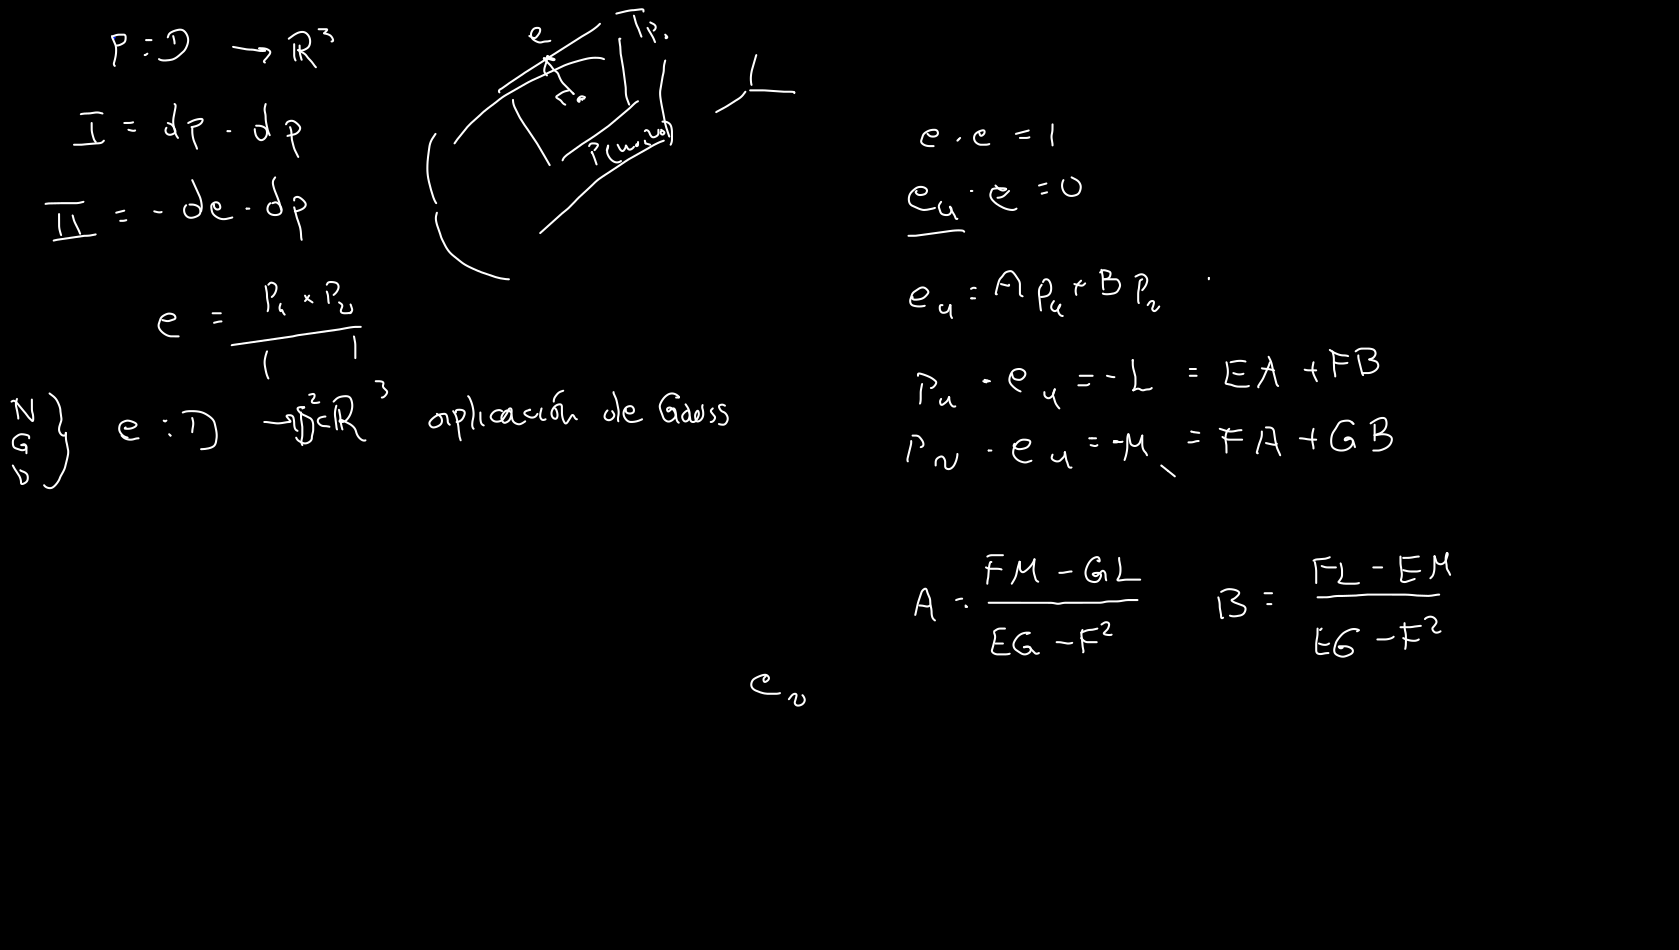 p : D → ℝ³
I = dp · dp
II = - de · dp
e = p_u × p_v / | |
N
G
D
e : D → S² ⊂ ℝ³ aplicación de Gauss
e
T_p.
P(u₀,v₀)
e · e = 1
e_u · e = 0
e_u = A p_u + B p_v
p_u · e_u = - L = EA + FB
p_v · e_u = - M = FA + GB
A = FM - GL / EG - F² B = FL - EM / EG - F²
e_v